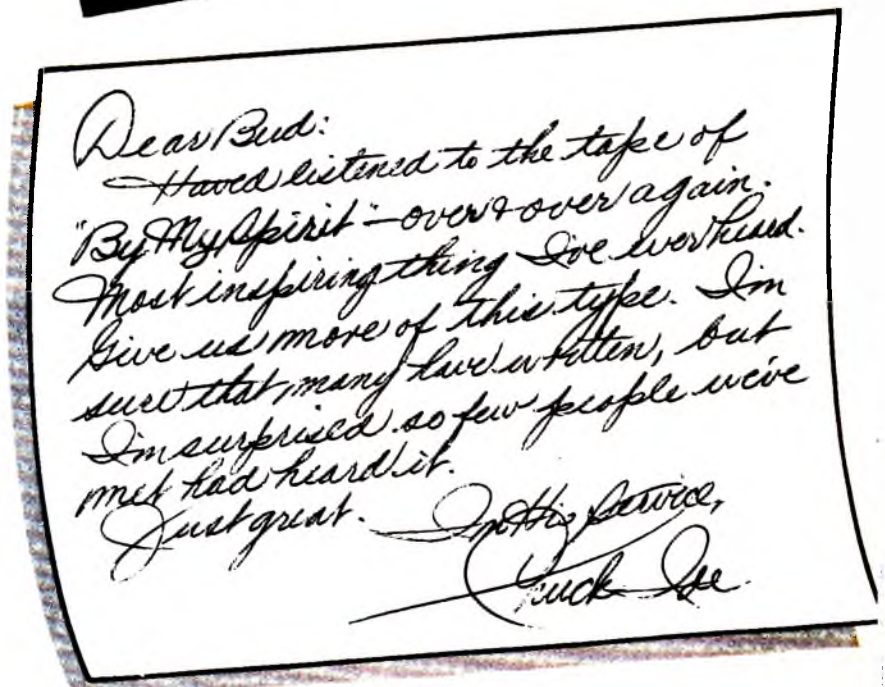 Dear Bud:
Haved listened to the tape of
"By My Spirit" - over & over again.
Most inspiring thing I've ever heard.
Give us more of this type. I'm
sure that many have written, but
I'm surprised so few people we've
met had heard it.
Just great. In His Service,
Chuck